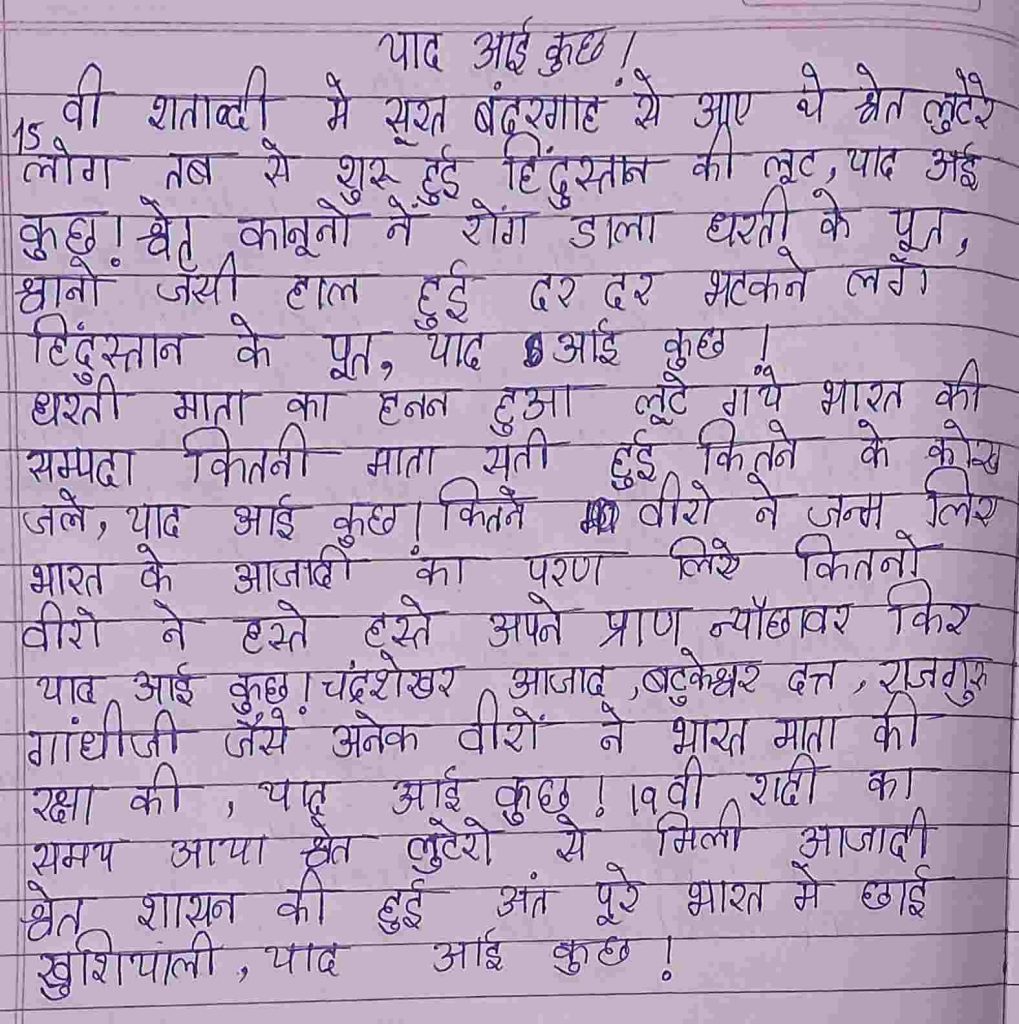 याद आई कुछ!
15 वी शताब्दी मे सूरत बंदरगाह से आए थे श्वेत लुटेरे
लोग तब से शुरू हुई हिंदुस्तान की लूट, याद आई
कुछ! श्वेत कानूनो ने रोंग डाला धरती के पूत,
श्वानो जैसी हाल हुई दर दर भटकने लगे
हिंदुस्तान के पूत, याद आई कुछ!
धरती माता का हनन हुआ लूटे गये भारत की
सम्पदा कितनी माता सती हुई कितने के कोख
जले, याद आई कुछ! कितने वीरो ने जन्म लिए
भारत के आजादी का परण लिऐ कितनो
वीरो ने हस्ते हस्ते अपने प्राण न्यौछावर किए
याद आई कुछ! चंद्रशेखर आजाद, बटुकेश्वर दत्त, राजगुरु
गांधीजी जैसे अनेक वीरों ने भारत माता की
रक्षा की, याद आई कुछ! 19वी शदी का
समय आया श्वेत लुटेरो से मिली आजादी
श्वेत शासन की हुई अंत पूरे भारत मे छाई
खुशियाली, याद आई कुछ!